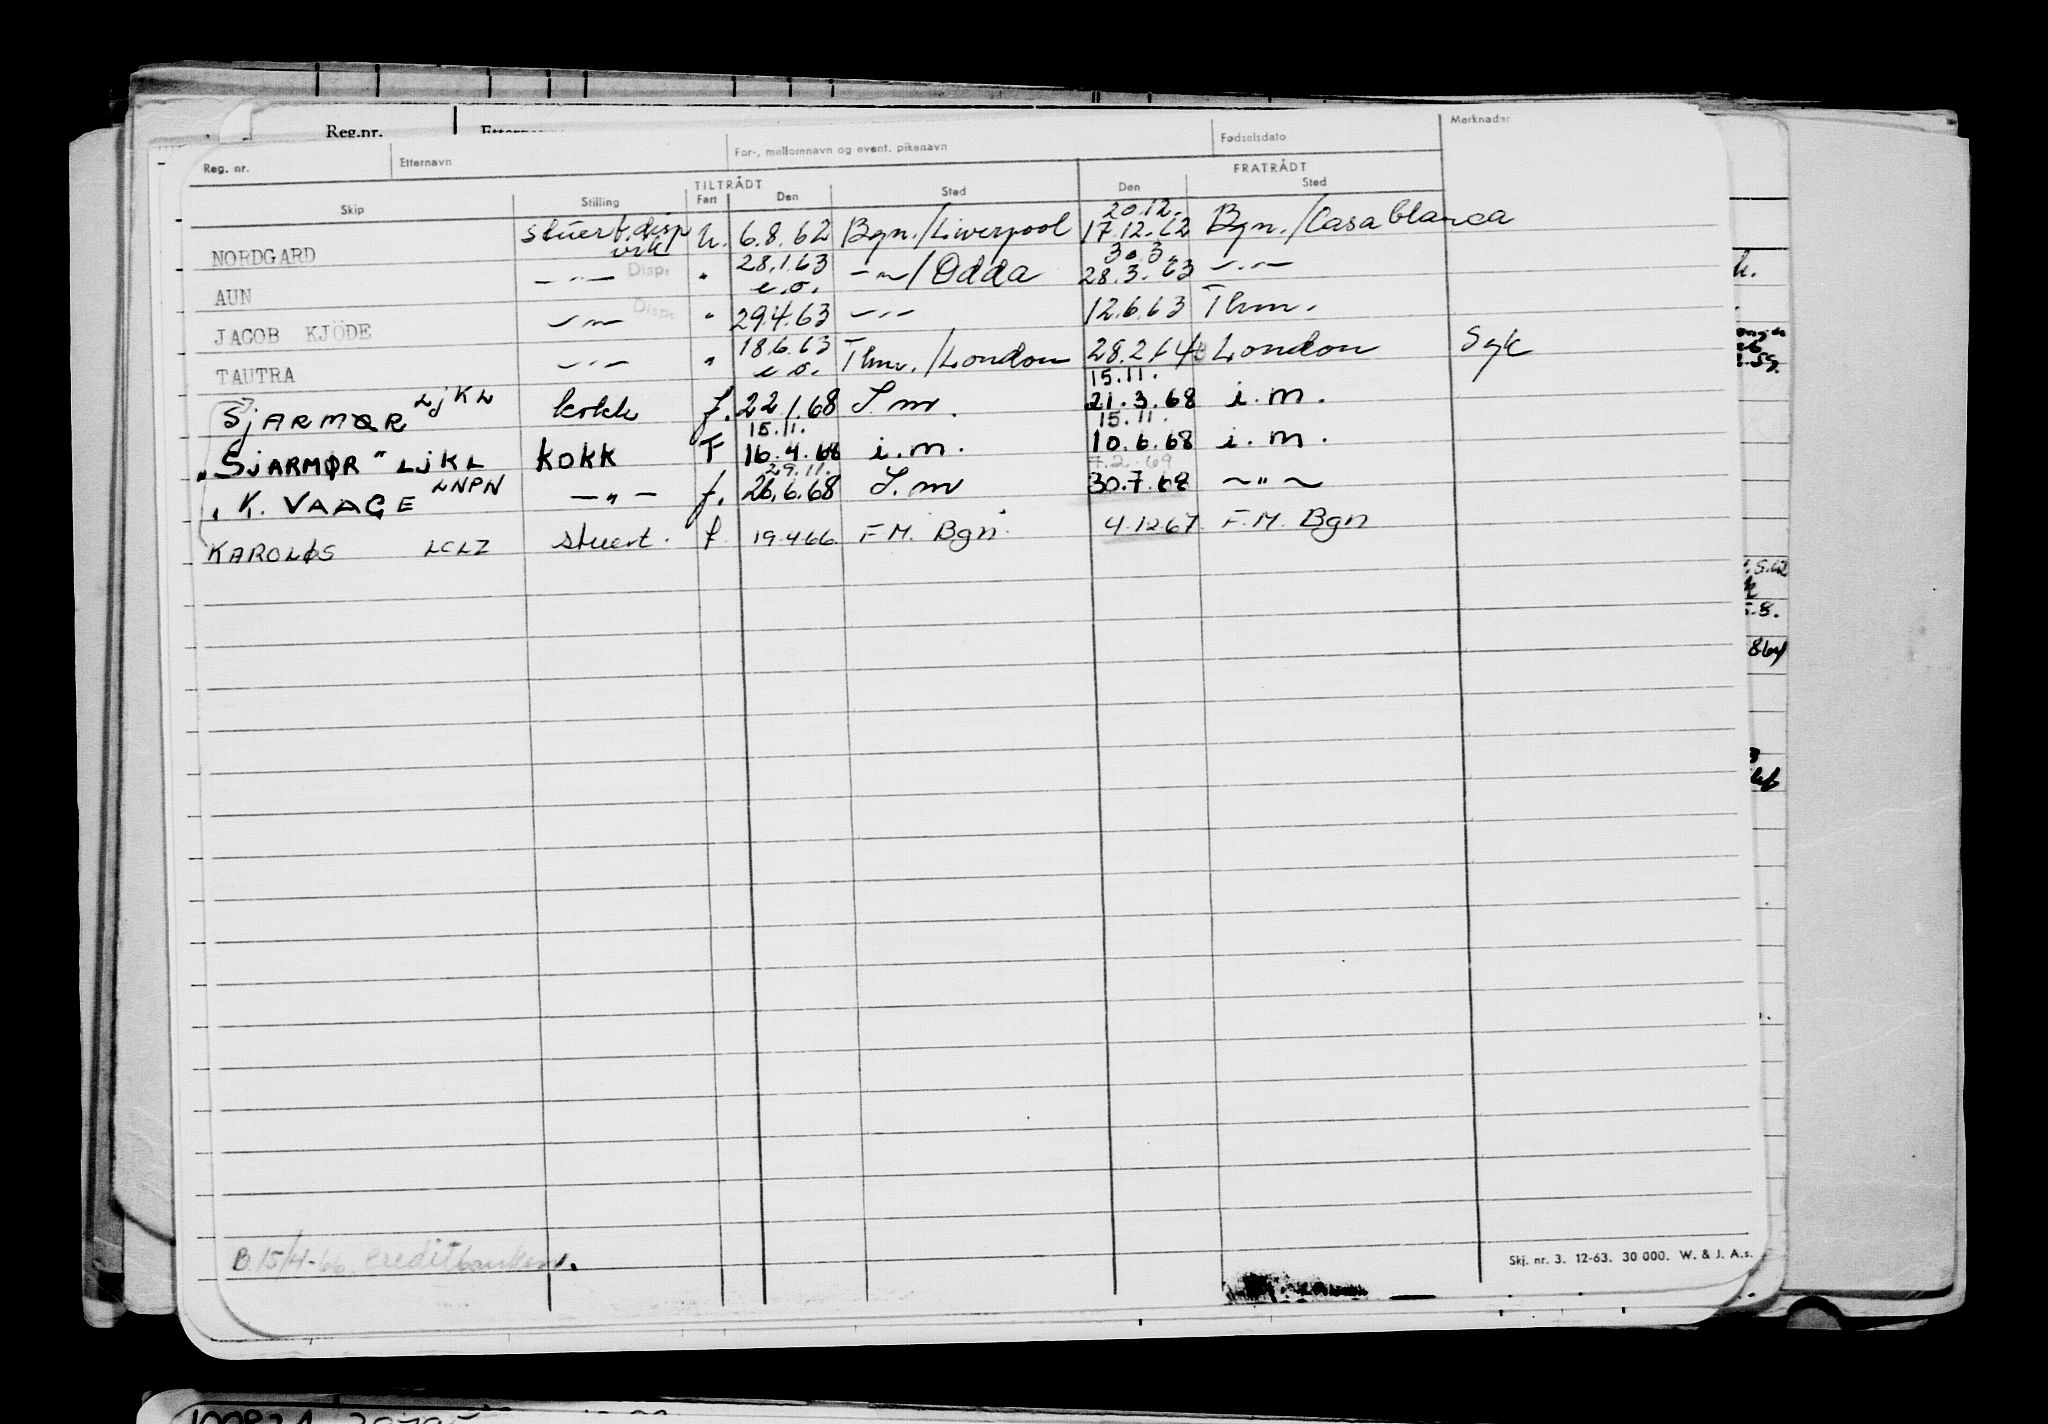 Reg.nr.
Reg. nr. Etternavn For-, mellomnavn og event. pikenavn Fødselsdato Merknader
TILTRÅDT FRATRÅDT
Skip Stilling Fart Den Sted Den Sted
20.12.
NORDGARD stuert disp U. 6.8.62 Bgn./Liverpool 17.12.62 Bgn./Casablanca
28.1.63 30.3.
AUN — " — Disp: " e.o. — " —/Odda 28.3.63 — " —
JACOB KJÖDE — " — Disp: " 29.4.63 — " — 12.6.63 Thm.
18.6.63
TAUTRA — " — " e.o. Thm./London 28.2.64 London Syk
15.11.
SjARMØR LjKL kokk f. 22.1.68 I.m. 21.3.68 i.m.
15.11. 15.11.
"SjARMØR" LjKL kokk F 16.4.68 i.m. 10.6.68 i.m.
29.11. 7.2.69
" K. VAAGE LNPN — " — f. 26.6.68 I.m 30.7.68 ~ " ~
KAROLØS LCLZ stuert. f 19.4.66 F.M. Bgn. 4.12.67 F.M. Bgn
B 15/4-66. Creditbanken.
Skj. nr. 3. 12-63. 30 000. W. & J. A.s.